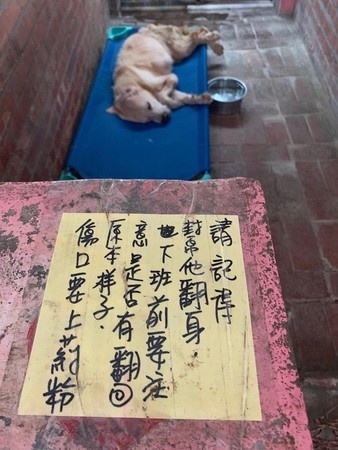 請記得
幫他翻身.
也下班前要注
意是否有翻回
原本樣子.
傷口要上葯粉